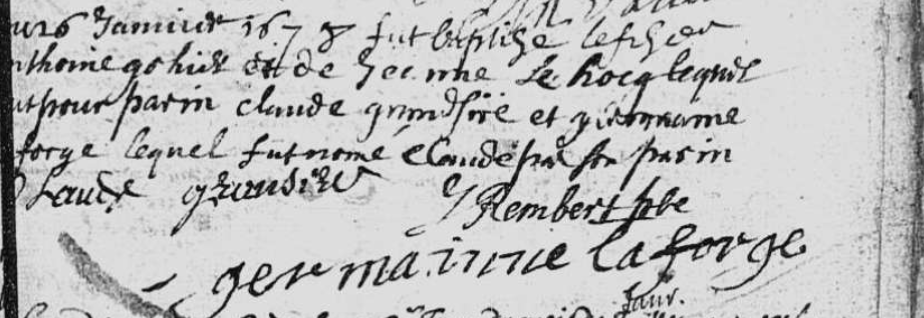 26 Januier 1678 fut baptise le fils de
nthoine gohier et de Jeanne Le hocq lequel
ut pour parin claude grandsire et germaine
forge lequel fut nomé Claude par son parin
Claude grandsire
J Rembert pbe
germainne la forge